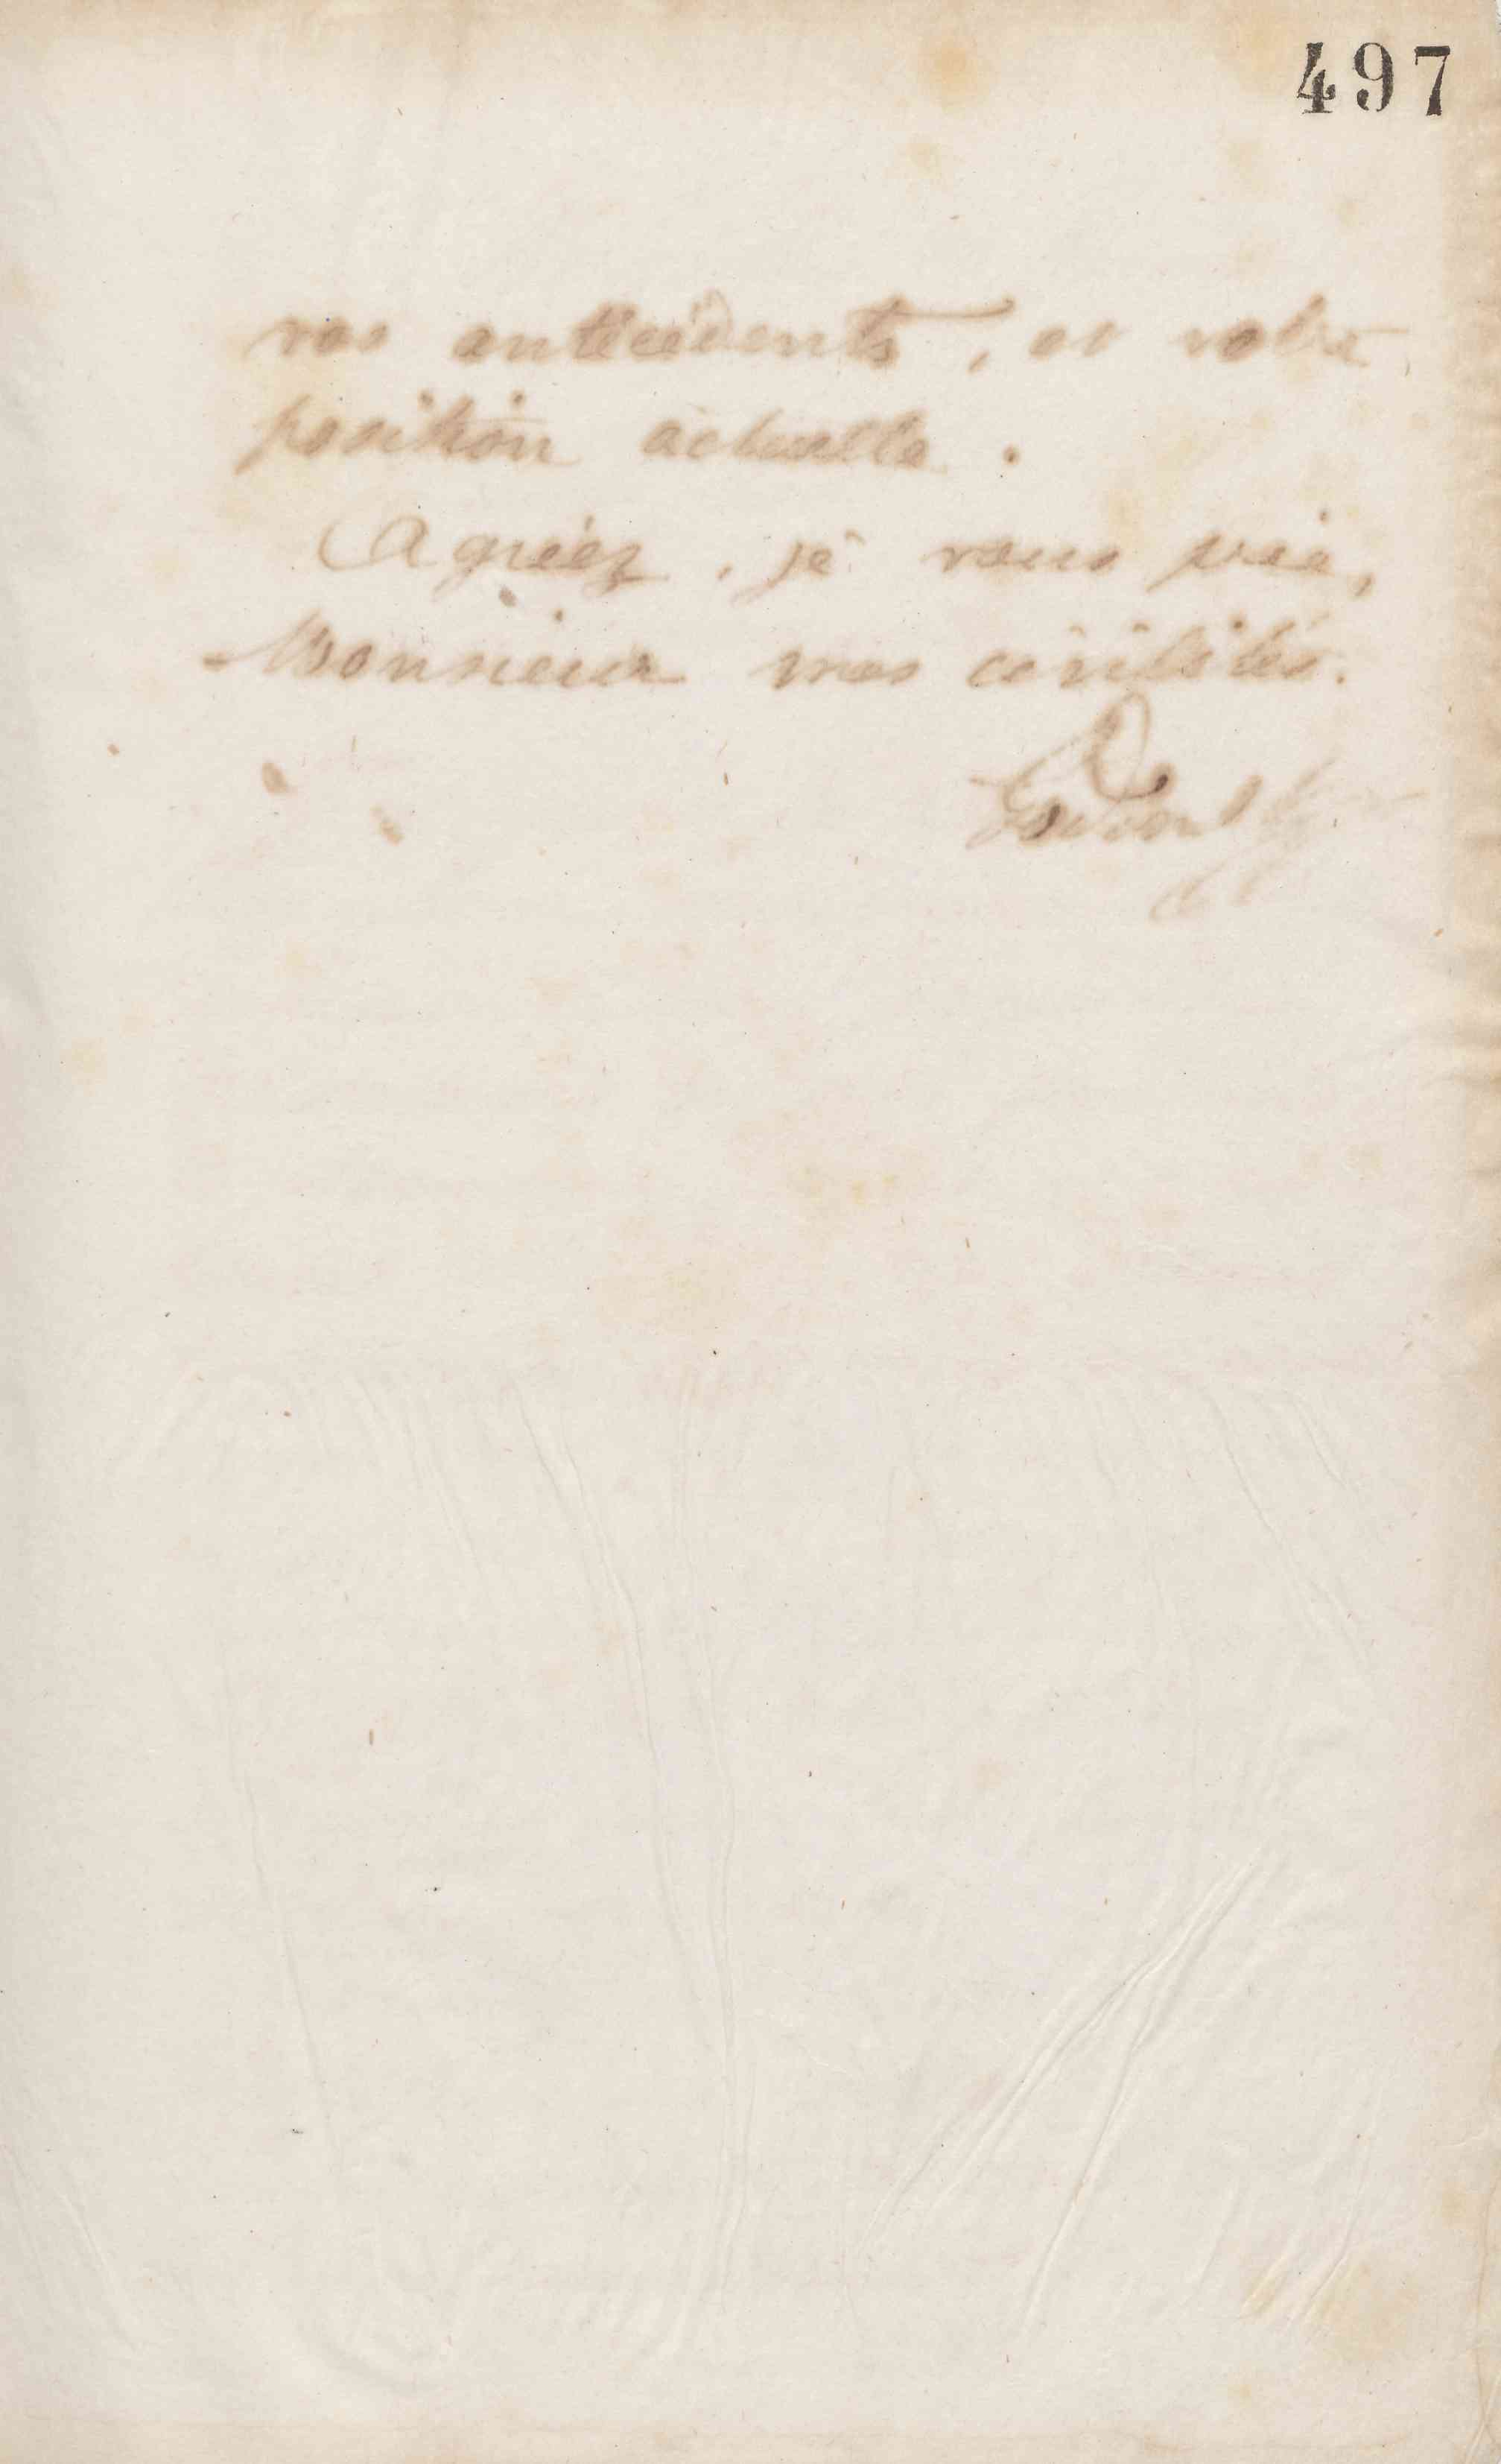 497
vos antécédents, et votre
position actuelle.
Agréez, je vous prie,
Monsieur mes civilités.